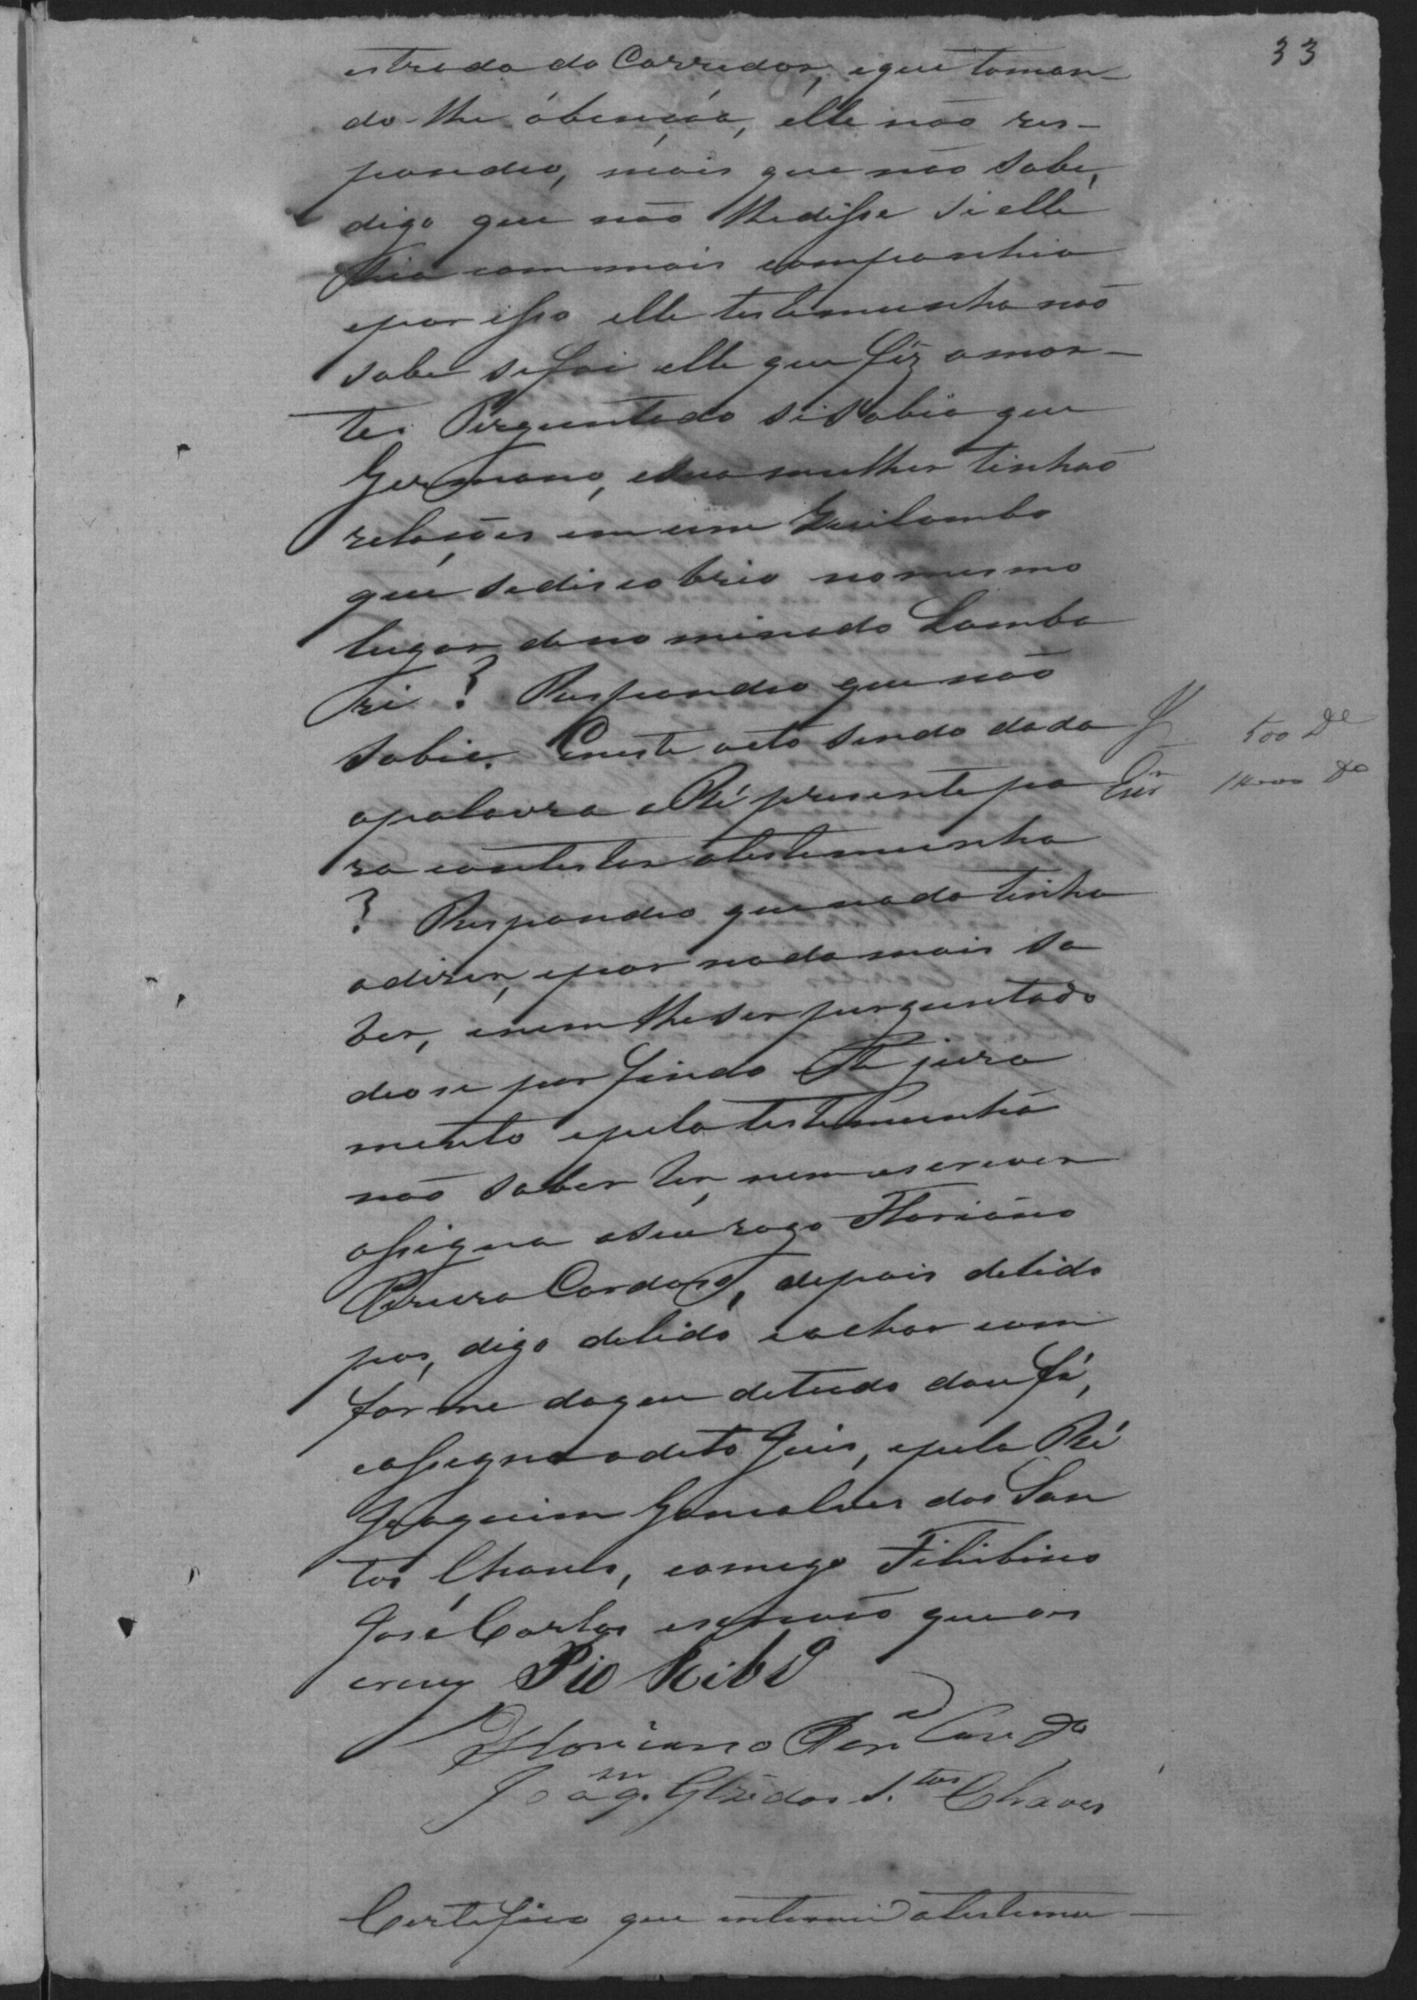 33
estrada do Corredor, e que toman-
do-lhe ábenção, elle não res-
pondeo, mais que não sabe,
digo que não lhe disse si elle
hia com mais companhia
e por isso elle testemunha não
sabe se foi elle que fêz a mor-
te. Perguntado si sabia que
Germano, e sua mulher tinhão
relacões em um Quilombo
que se discobrio no mesmo
lugar denominado Lamba
ri? Respondeo que não
sabia. E neste acto sendo dada
500 Dº
a palavra a Ré presente pa
ra contestar a testemunha
? Respondeo que nada tinha
a dizer, e por nada mais sa
ber, e nem lhe ser perguntado
deo se por findo este jura
mento e pela testemunha
não saber ler, nem escrever
assigna a seu rogo Floriano
Pereira Cardoso, depois de lido
por, digo de lido e achar com
forme do que de tudo dou fé,
e assigna o dito Juis, e pela Ré
Joaquim Gonsalves dos San
tos Chaves, comigo Filibino
José Carlos escrivão que es
crevy Pio Ribº
Floriano Perª Cardº
Joaqm. Glz dos S.tos Chaves
Certifico que intimei a testemu-